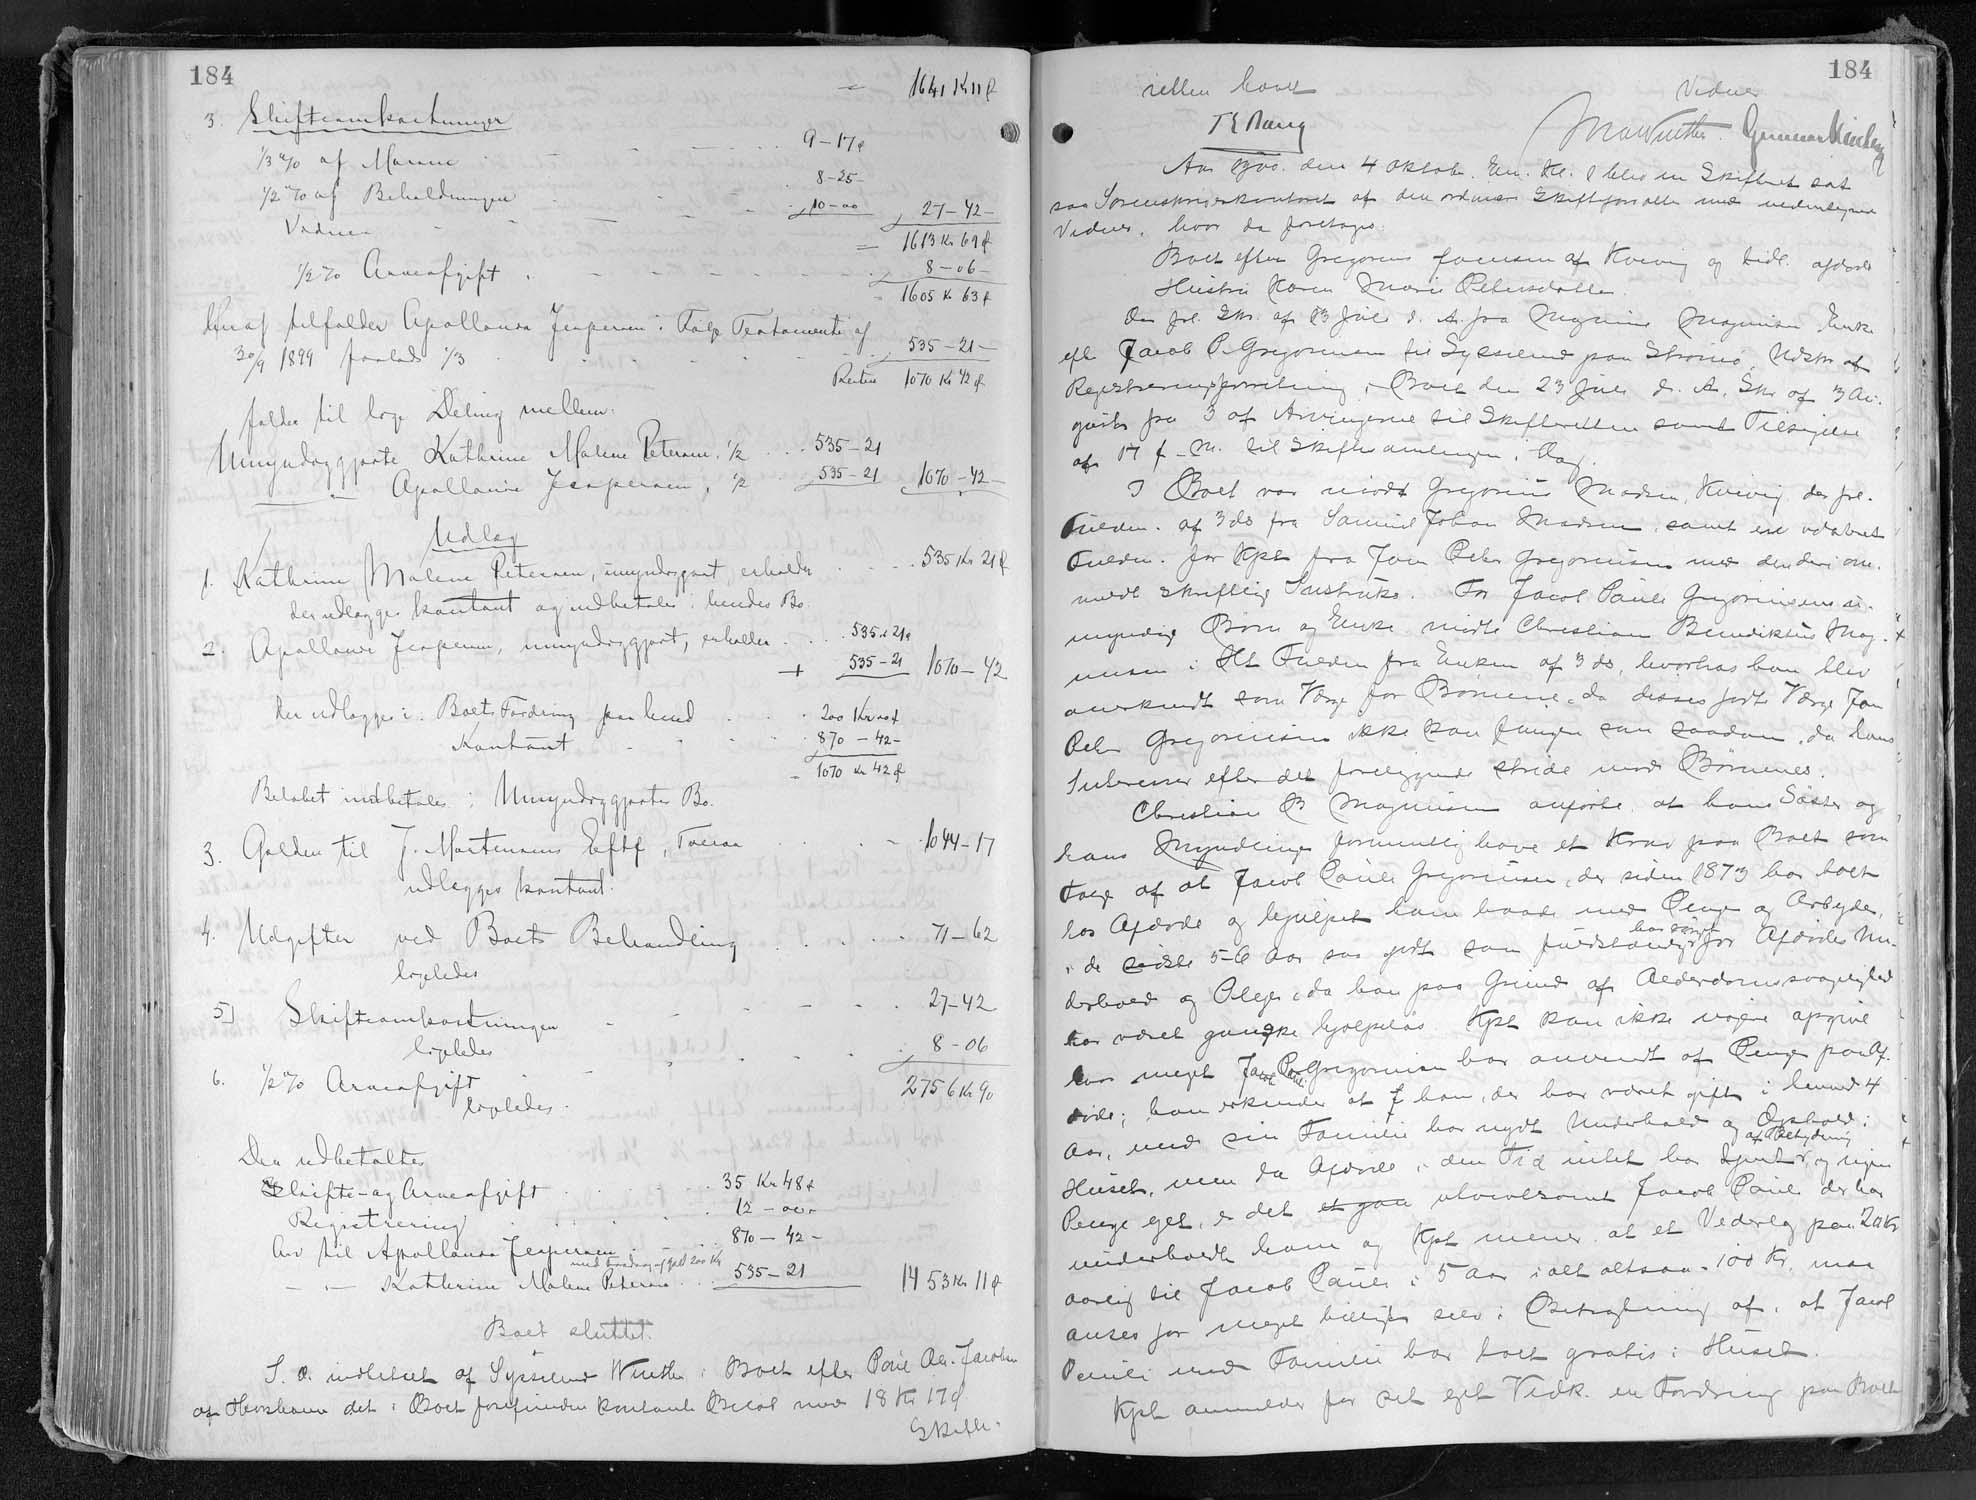 184
= 1641 Kr 11 ø
3. Skifteomkostninger
1/3 % af Massen 9-17 ø
1/2 % af Beholdningen 8-25-
Vidner 10-00 27-42-
= 1613 Kr 69 ø
1/2 % Arveafgift 8-06-
1605 Kr 63 ø
Heraf tilfalder Apollonia Jespersen i Følge Testamente af
30/9 1899 forlods 1/3 535-21-
Resten 1070 Kr 42 ø
falder til lige Deling mellem:
Umyndiggjorte Kathrine Malene Petersen, 1/2 535-21
— " — Apollonia Jespersen, 1/2 535-21 1070-42-
Udlæg
1. Kathrine Malene Petersen, umyndiggjort, erholder 535 Kr 21 ø
der udlægges kontant og indbetales i hendes Bo.
2. Apollonia Jespersen, umyndiggjort, erholder 535 Kr 21 ø
+ 535-21 1070-42
der udlægges i: Boets Fordring paa hende 200 Kr 00 ø
Kontant 870-42-
= 1070 Kr 42 ø
Beløbet indbetales i Umyndiggjortes Bo.
3. Gælden til J. Mortensens Eftf, Tværaa 1044-17
udlægges kontant.
4. Udgifter ved Boets Behandling 71-62
ligeledes
5] Skifteomkostningen 27-42
ligeledes
6. 1/2 % Arveafgift 8-06
ligeledes. 2756 Kr 90
Der udbetaltes
Skifte- og Arveafgift 35 Kr 48 ø
Registrering 12-00-
Arv til Apollonia Jespersen 870-42-
med Fradrag af Gæld 200 Kr
— " — Kathrine Malene Petersen 535-21 1453 Kr 11 ø
Boet sluttet.
S. D. indleveret af Sysselmd Winther i Boet efter Poul Al. Jacobsen
af Thorshavn det i Boet forefundne kontante Beløb med 18 Kr 17 ø
Skifte-
184
retten hævet
Vidner
Aar 1900 den 4 Oktob. Em. Kl. blev en Skifteret sat
paa Sorenskriverkontoret af den ordinære Skifteforvalter med undertegnede
Vidner, hvor da foretoges:
Boet efter Gregorius Joensen af Kvivig og tidl. afdøde
Hustru Karen Marie Petersdatter
Der frl. Skr. af 13 Juli d. A. fra Magnusen Enke
eft. Jacob P. Gregoriusen til Sysselmd paa Strømø, Udskr af
Registreringsforretning i Boet den 23 Juli d. A. Skr af 3 Au-
gust fra 3 af Arvingerne til Skifteretten samt Tilsigelse
af 17 f. M. til Skiftesamlingen i Dag.
I Boet var mødt Gregorius Madsen, Kvivig, der frl.
Fuldm. af 3 ds fra Samuel Johan Madsen, samt en udateret
Fuldm. for Kpt fra Joen Peter Gregoriusen med den deri om-
meldt skriftlige Instruks. For Jacob Pauli Gregoriusens u-
myndige Børn og Enke mødte Christian Benediktus Mag-
nusen i Hht Fuldm fra Enken af 3 ds, hvorhos han blev
anerkendt som Værge for Børnene, da disses fødte Værge Joen
Peter Gregoriusen ikke kan fungere som saadan, da hans
Interesser efter det foreliggende stride mod Børnenes.
Christian B Magnusen anførte at hans Søster og
hans Myndlinge formentlig have et Krav paa Boet som
Følge af at Jacob Pauli Gregoriusen, der siden 1873 har boet
hos Afdøde og hjulpet ham baade med Penge og Arbejde,
i de sidste 5-6 Aar saa godt som fuldstændig har sørget for Afdødes Un-
derhold og Pleje, da han paa Grund af Alderdomssvagelighed
har været ganske hjælpeløs. Kpt kan ikke nøjere opgive
hvor meget Jacob Pauli Gregoriusen har anvendt af Penge paa Af-
døde; han erkender at J han, der har været gift i henved 4
Aar, med sin Familie har nydt Underhold og Ophold i
Huset, men da Afdøde i den Tid intet har tjent af Betydning, og ingen
Penge ejet, er det utvivlsomt Jacob Pauli der har
underholdt ham og Kpt mener at et Vederlag paa 20 Kr
aarlig til Jacob Pauli i 5 Aar i alt altsaa 100 Kr. maa
anses for meget billigt selv i Betragtning af, at Jacob
Pauli med Familie har boet gratis i Huset.
Kpt anmelder for sit eget Vedk. en Fordring paa Boet